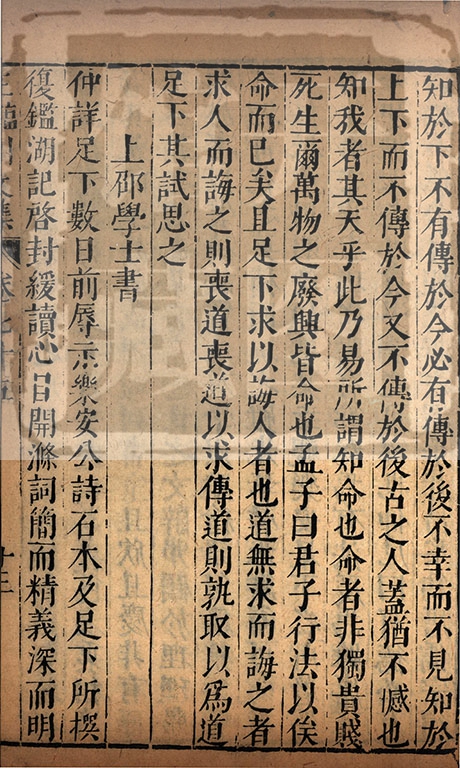 知於下不有傳於今必有傳於後不幸而不見知於
上下而不傳於今又不傳於後古之人蓋猶不憾也
知我者其天乎此乃易所謂知命也命者非獨貴賤
死生爾萬物之廢興皆命也孟子曰君子行法以俟
命而已矣且足下求以誨人者也道無求而誨之者
求人而誨之則喪道喪道以求傳道則孰取以爲道
足下其試思之
上邵學士書
仲詳足下數日前辱示樂安公詩石本及足下所撰
復鑑湖記啓封緩讀心目開滌詞簡而精義深而明
王臨川文集 卷七十五 十二